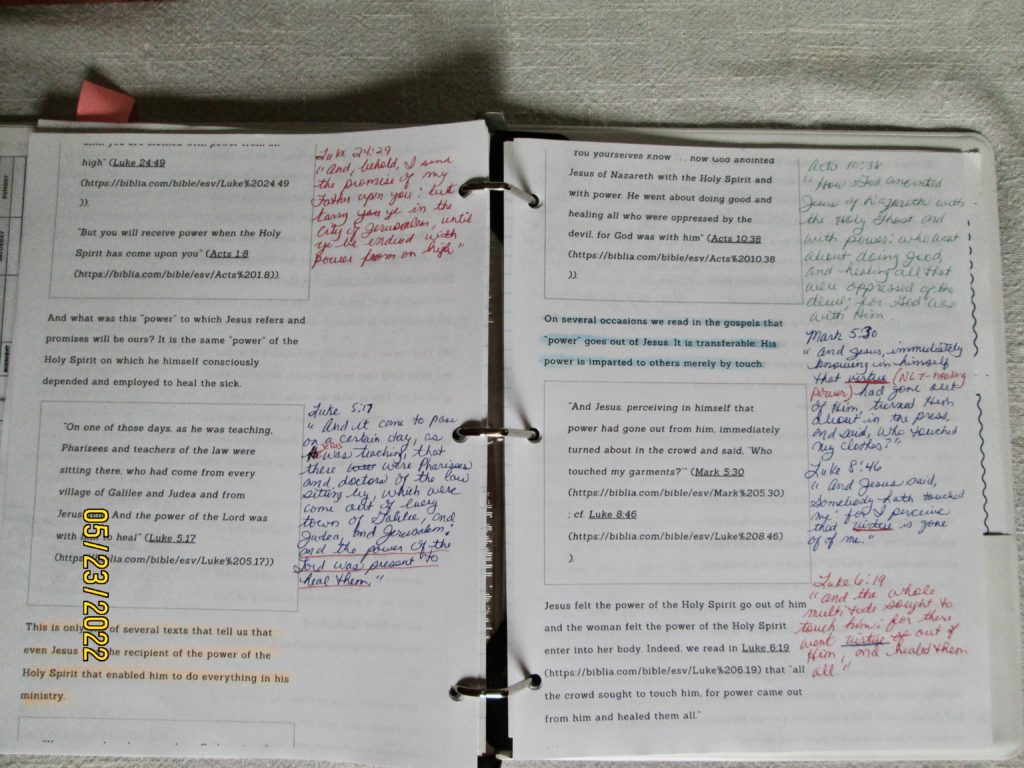 high" (Luke 24:49
(https://biblia.com/bible/esv/Luke%2024.49
)).
"But you will receive power when the Holy
Spirit has come upon you" (Acts 1:8
(https://biblia.com/bible/esv/Acts%201.8)).
And what was this "power" to which Jesus refers and
promises will be ours? It is the same "power" of the
Holy Spirit on which he himself consciously
depended and employed to heal the sick.
"On one of those days, as he was teaching,
Pharisees and teachers of the law were
sitting there, who had come from every
village of Galilee and Judea and from
And the power of the Lord was
with to heal" (Luke 5:17
(https://biblia.com/bible/esv/Luke%205.17))
This is only of several texts that tell us that
even Jesus the recipient of the power of the
Holy Spirit that enabled him to do everything in his
ministry.
Luke 24:29
"And, behold, I send
the promise of my
Father upon you: but
tarry you ye in the
City of Jerusalem, until
ye be endued with
power from on high"
Luke 5:17
"And it came to pass
on a certain day, as
was teaching, that
there were Pharisees
and doctors of the law
sitting by, which were
come out of every
town of Galilee, and
Judea, and Jerusalem:
and the power of the
Lord was present to
heal them."
05/23/2022
You yourselves know . . . how God anointed
Jesus of Nazareth with the Holy Spirit and
with power. He went about doing good and
healing all who were oppressed by the
devil, for God was with him" (Acts 10:38
(https://biblia.com/bible/esv/Acts%2010.38
)).
On several occasions we read in the gospels that
"power" goes out of Jesus. It is transferable. His
power is imparted to others merely by touch:
"And Jesus, perceiving in himself that
power had gone out from him, immediately
turned about in the crowd and said, 'Who
touched my garments?'" (Mark 5:30
(https://biblia.com/bible/esv/Mark%205.30)
; cf. Luke 8:46
(https://biblia.com/bible/esv/Luke%208.46)
).
Jesus felt the power of the Holy Spirit go out of him
and the woman felt the power of the Holy Spirit
enter into her body. Indeed, we read in Luke 6:19
(https://biblia.com/bible/esv/Luke%206.19) that "all
the crowd sought to touch him, for power came out
from him and healed them all."
Acts 10:38
"How God anointed
Jesus of Nazareth with
the Holy Ghost and
with power: who went
about doing good,
and healing all that
were oppressed of the
devil; for God was
with Him.
Mark 5:30
"And Jesus, immediately
knowing in himself
that virtue (NLT-healing
power) had gone out
of Him, turned Him
about in the press,
and said, Who touched
my clothes?"
Luke 8:46
"And Jesus said,
Somebody hath touched
me: for I perceive
that virtue is gone
of of me."
Luke 6:19
"and the whole
multitude sought to
touch him: for there
went virtue of out of
Him, and healed them
all."